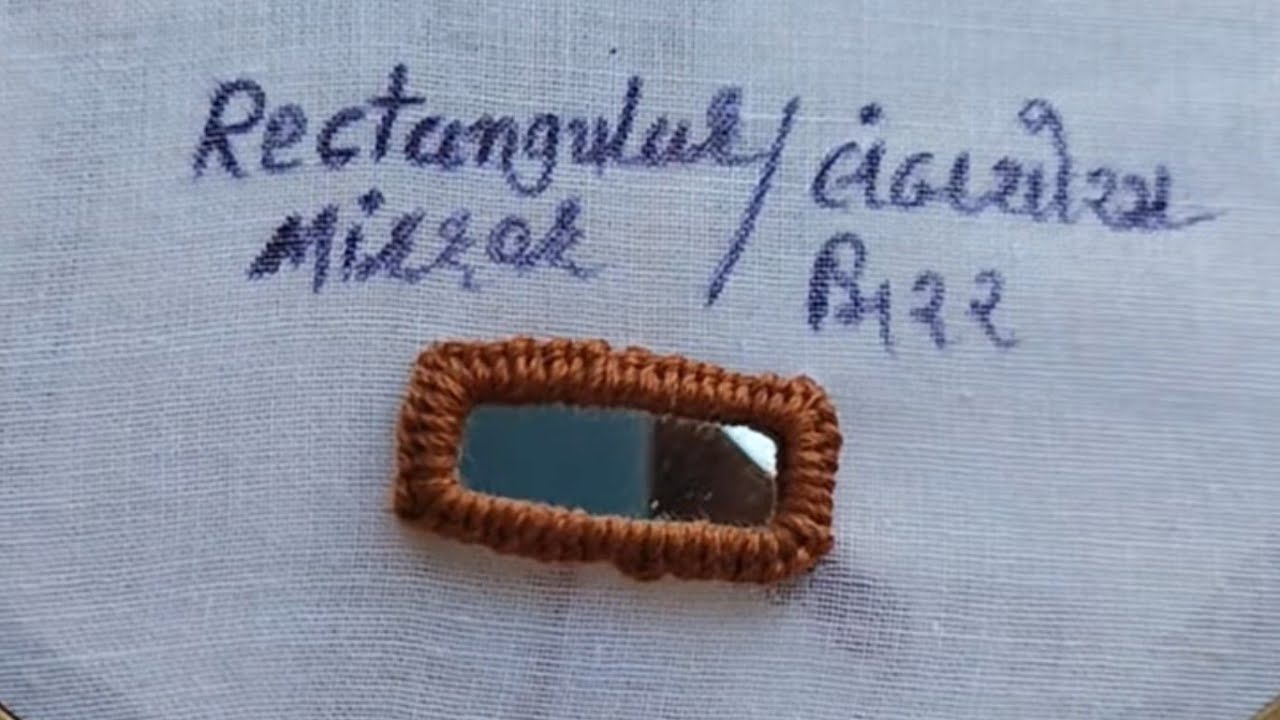 Rectangular / લંબચોરસ
Mirror મિરર